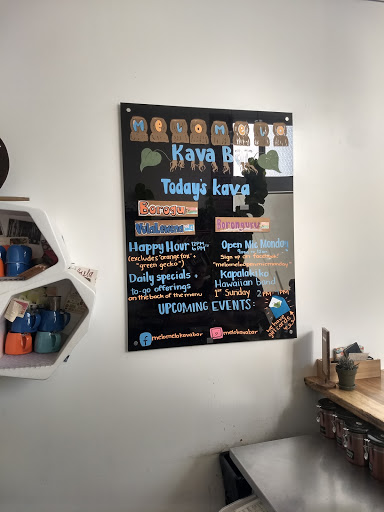 MeloMelo
Kava Bar
Today's kava
Borogu
Borongueru
Happy Hour
(excludes "orange fox" + "green gecko")
Daily specials +
to-go offerings
on the back of the menu
Open Mic Monday
Sign up on facebook!
Kapalakiko
Hawaiian band
1st Sunday 2PM
UPCOMING EVENTS:
melomelokavabar
melokavabar